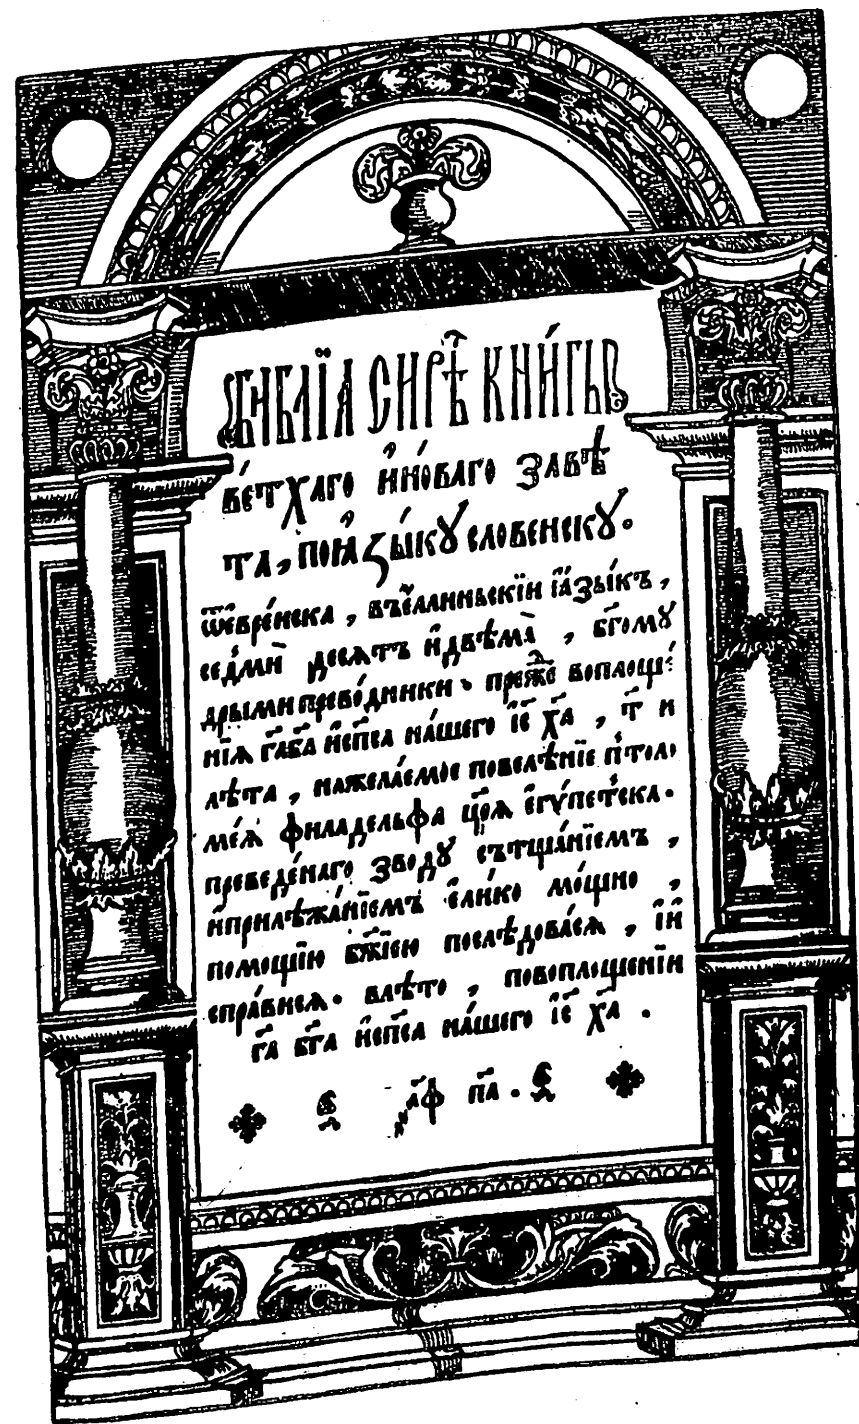 БИБЛЇА СИРѢ҇Ч КНИ́ГЫ
ВЕ́ТХАГО И҆НО́ВАГО ЗАВѢ
ТА, ПОꙖ҆ЗЫ́КꙊ СЛОВЕНСКꙊ.
ѿе҆вре́йска, въе҆ллиньскїй ꙗ҆зы́къ,
се́дмиⷣ десѧтъ и҆двѣма̀, бг҃омꙋ
дрыми прево́дники. преⷤ воплоще́
нїѧ гⷭ҇аба и҆сп҃са на́шего і҆ѵ҃ х҃а, т҃ и
лѣта, нажела́емое повелѣнїе птоло
ме́ѧ филадельфа цр҃ѧ є҆гѵ́петска.
преведе́наго зводꙋ сътща́нїемъ,
и҆прилѣжа́нїемъ є҆ли́ко мо́щно,
помощїю бж҃їею послѣдова́сѧ, и҆
спра́висѧ. влѣто, повоплощенїи
г҃а бг҃а и҆сп҃са на́шего і҆ѵ҃ х҃а.
҂аф п҃а.